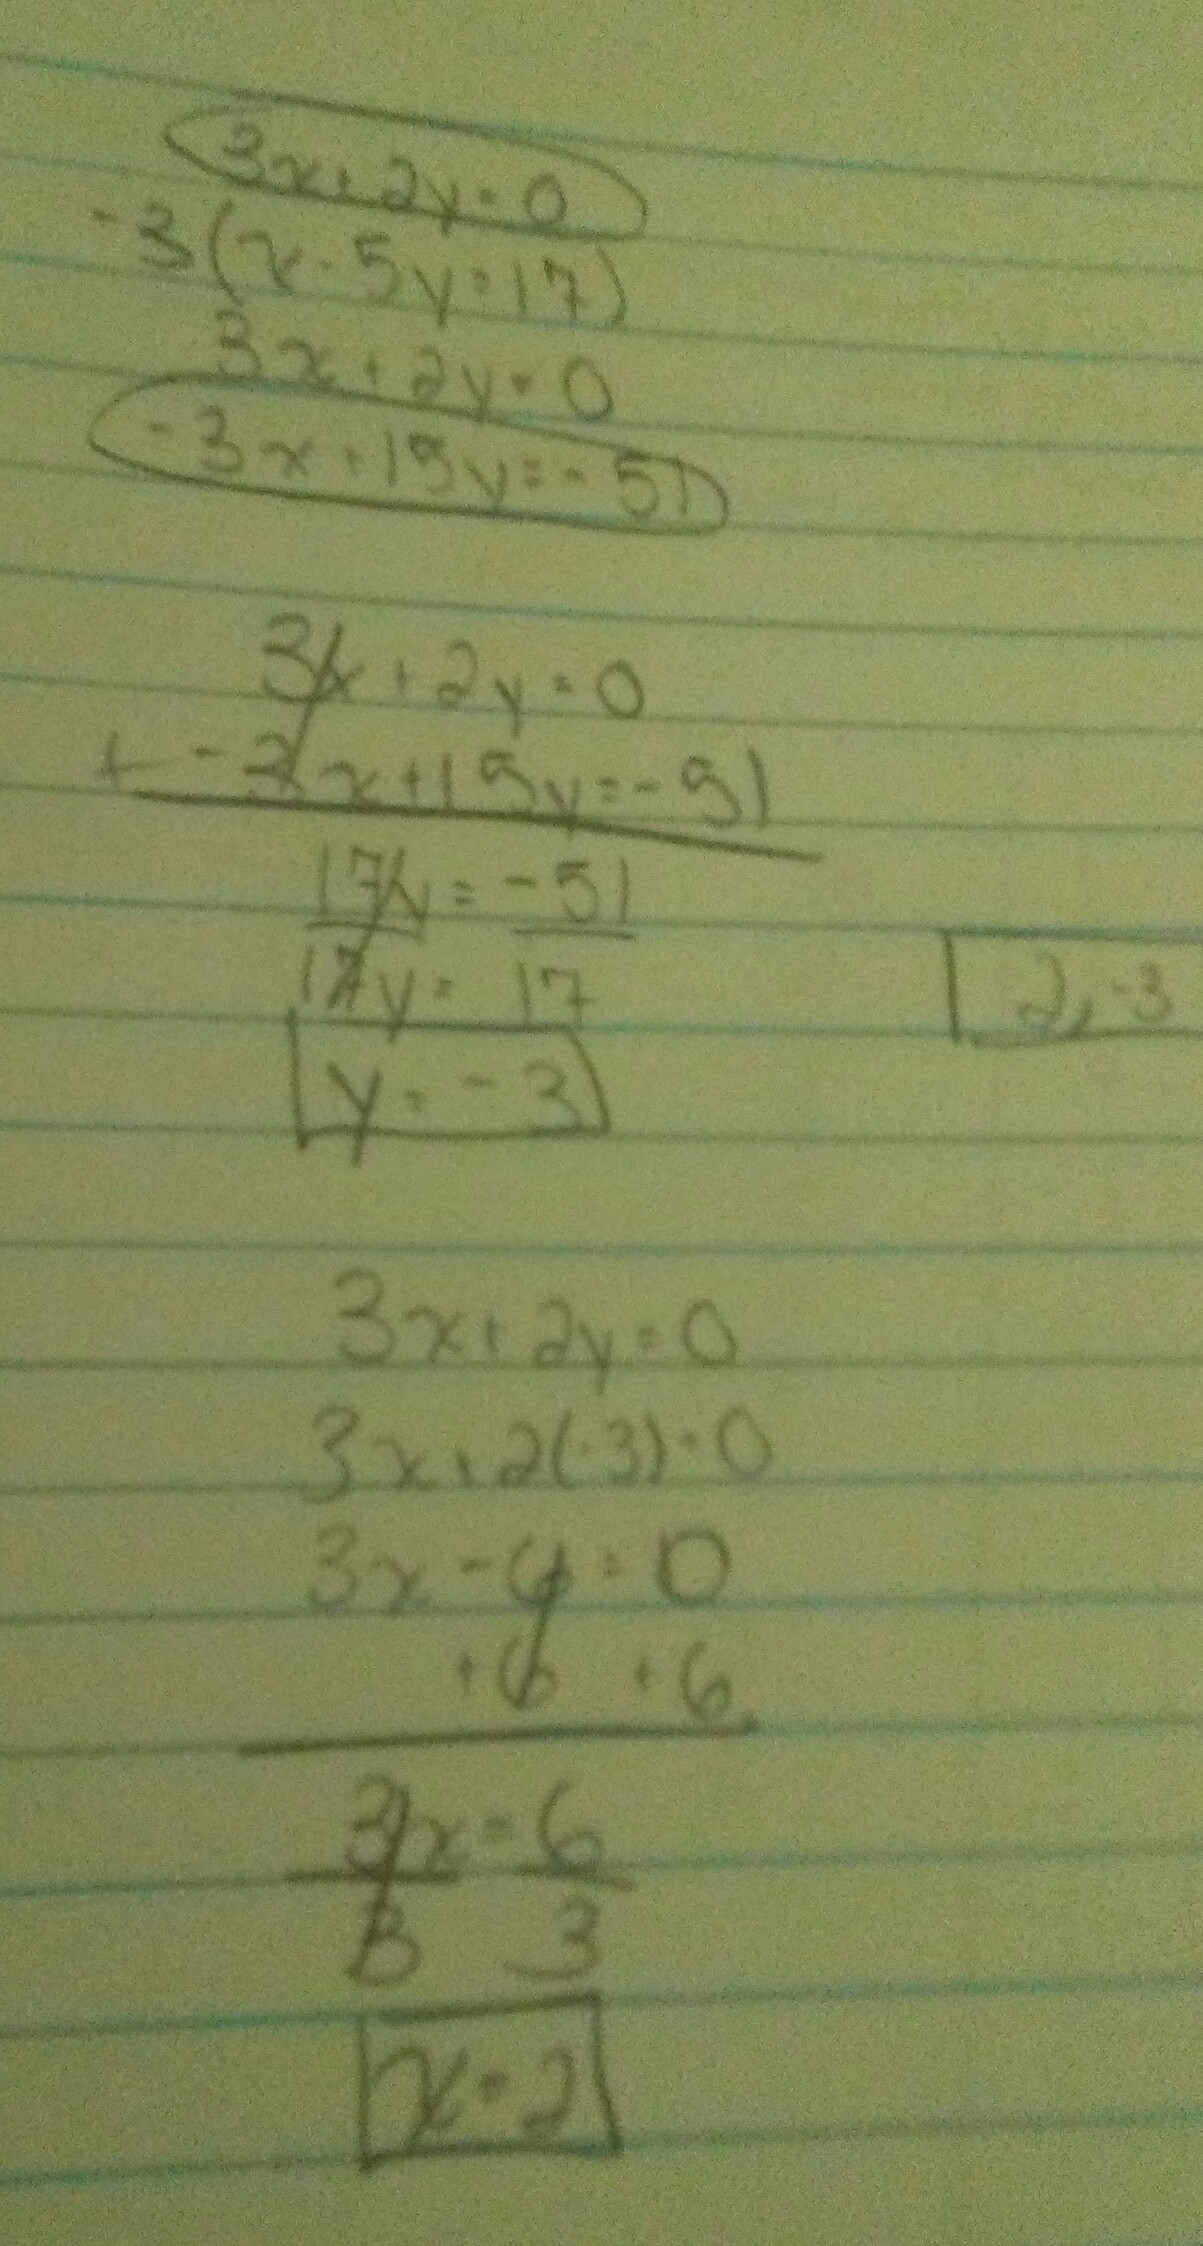 3x + 2y = 0
-3(x - 5y = 17)
3x + 2y = 0
-3x + 15y = -51
3x + 2y = 0
+ -3x + 15y = -51
17y = -51
17y = 17
2, -3
y = -3
3x + 2y = 0
3x + 2(-3) = 0
3x - 6 = 0
+6 +6
3x = 6
3 3
x = 2